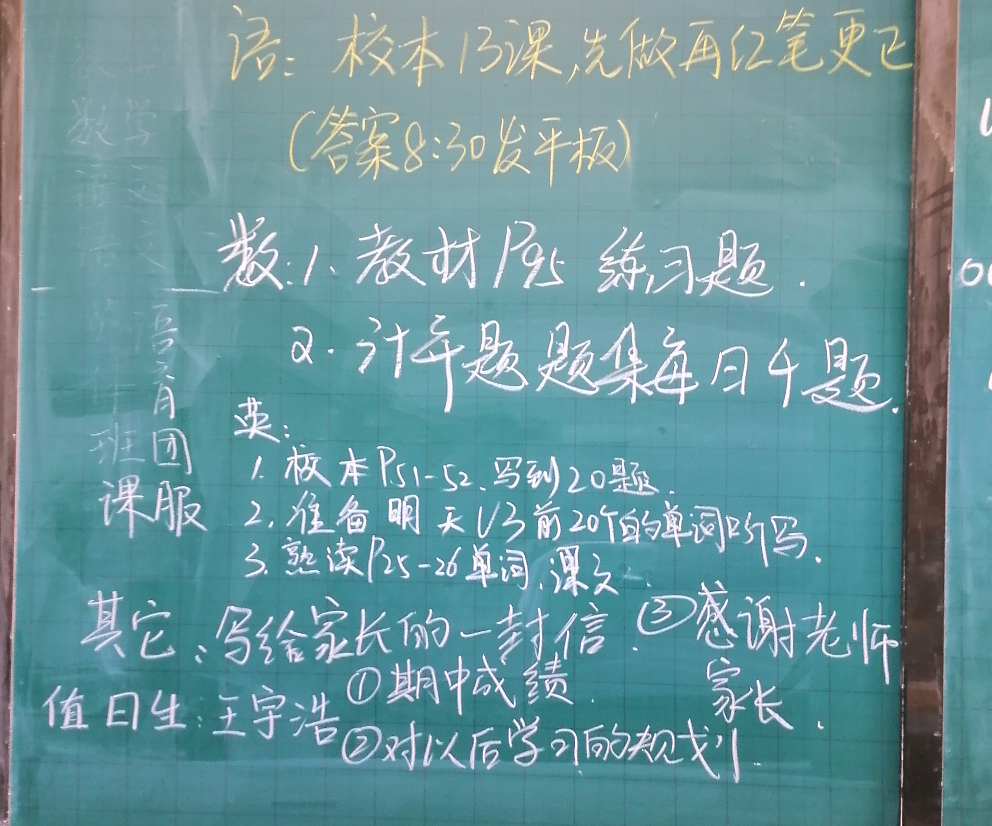 语：校本13课，先做再红笔更正
（答案8:30发平板）
数：1、教材P95 练习题.
2. 计算题题集每日4题.
英：
1. 校本P51-52、写到20题.
2. 准备明天U3前20个的单词听写.
3. 熟读P25-26单词、课文.
其它：写给家长的一封信.
①期中成绩.
②对以后学习的规划
③感谢老师
家长.
值日生：王宇浩
数学
班团
课服